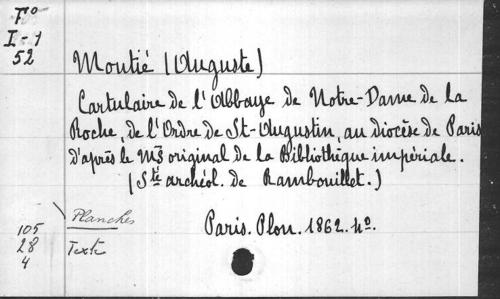 Fo
I-1
52
Moutié (Auguste)
Cartulaire de l'Abbaye de Notre-Dame de la
Roche, de l'Ordre de St-Augustin, au diocèse de Paris
d'après le Ms original de la Bibliothèque impériale.
(Sté archéol. de Rambouillet.)
Planches
Paris. Plon. 1862. 4o.
105
28
4
Texte